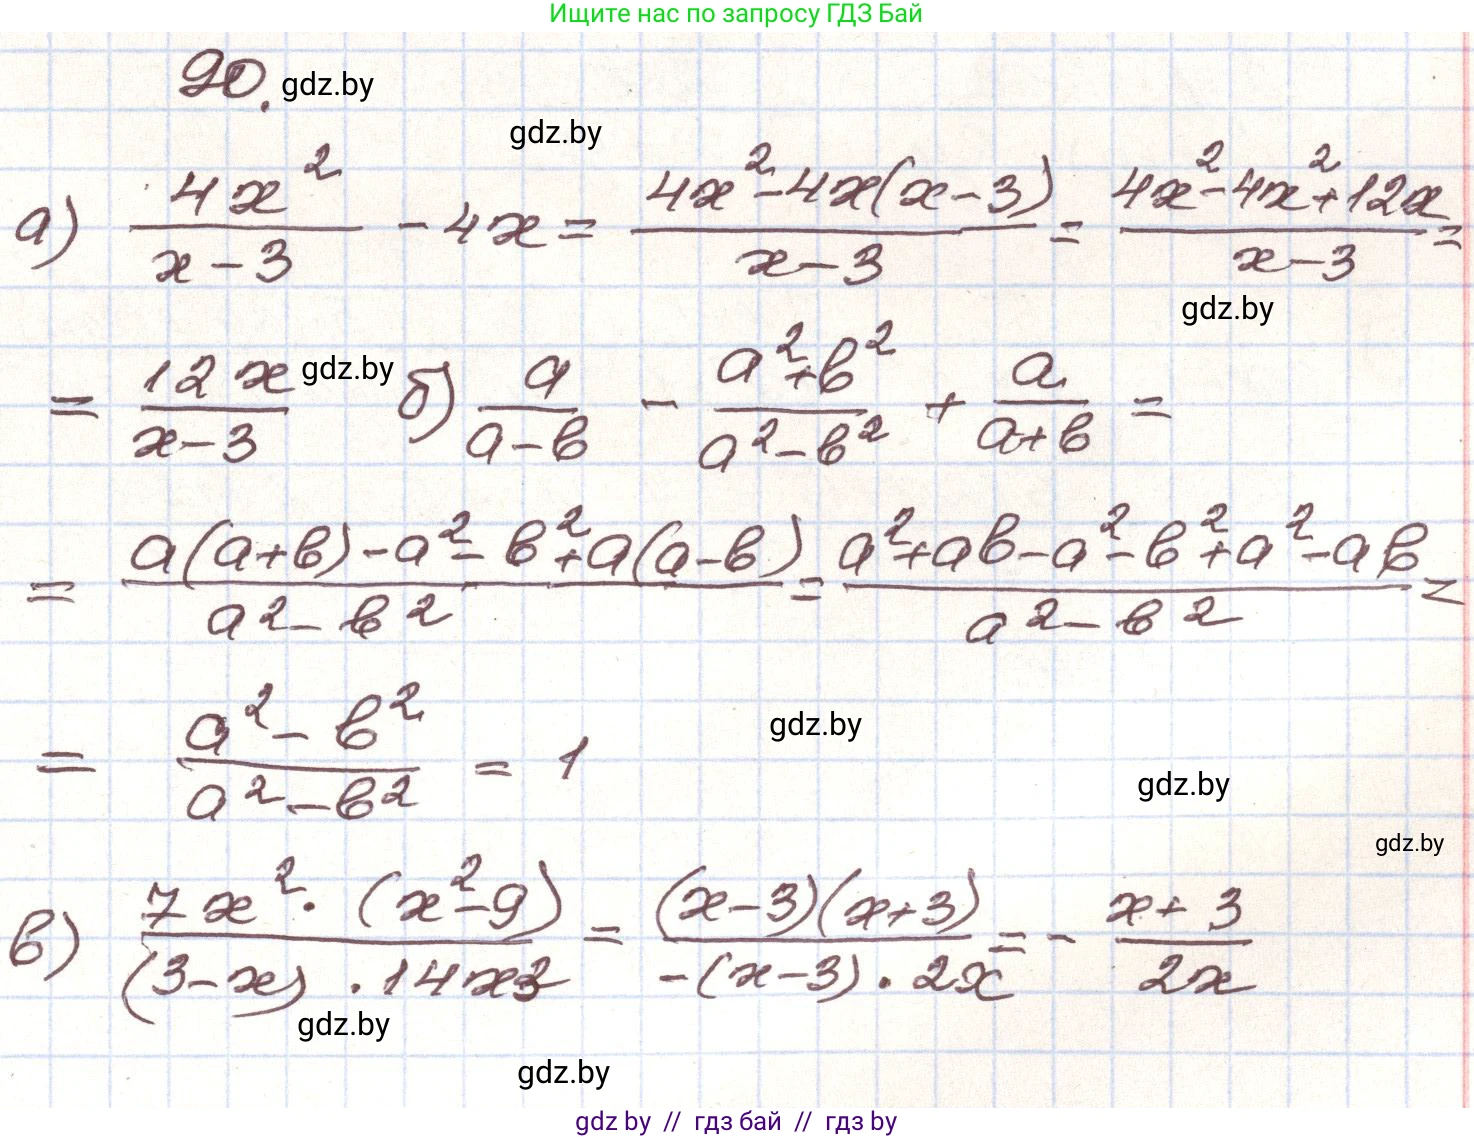 Ищите нас по запросу ГДЗ Бай
90. gdz.by
gdz.by
а) 4x²/(x-3) - 4x = (4x²-4x(x-3))/(x-3) = (4x²-4x²+12x)/(x-3) =
gdz.by
= 12x/(x-3) gdz.by б) a/(a-b) - (a²+b²)/(a²-b²) + a/(a+b) =
= (a(a+b)-a²-b²+a(a-b))/(a²-b²) = (a²+ab-a²-b²+a²-ab)/(a²-b²) =
= (a²-b²)/(a²-b²) = 1
gdz.by
gdz.by
gdz.by
в) (7x²·(x²-9))/((3-x)·14x³) = ((x-3)(x+3))/(-(x-3)·2x) = - (x+3)/(2x)
gdz.by
gdz.by
gdz by // гдз бай // гдз by